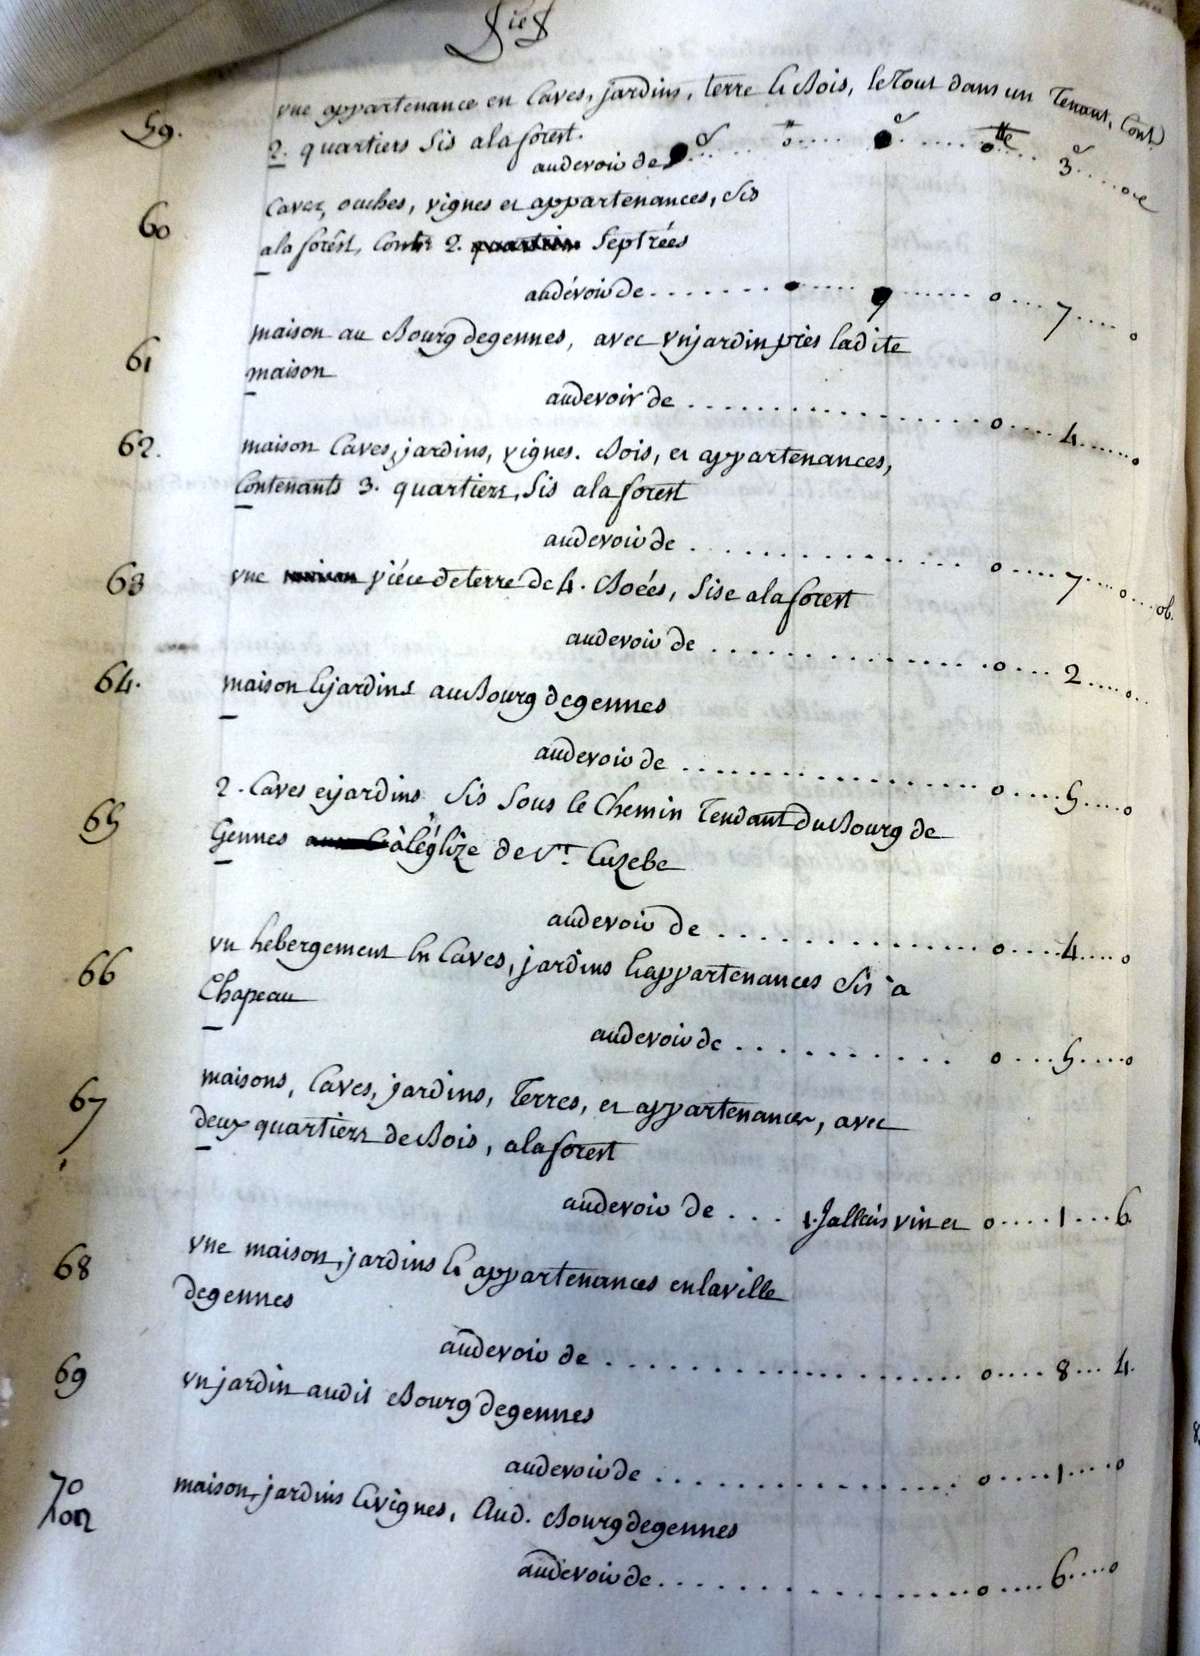 fief
59. une appartenance en Caves, jardins, terre & Bois, le Tout dans un Tenant, Cont.
2. quartiers Sis ala forest.
audevoir de . . . . o . . . . . . o . . . . 3 . . . . o
60 Caves, ouches, vignes et appartenances, Sis
ala forest, Contt 2. Septrées
audévoir de . . . . . . . . . . o . . . . 7 . . . . o
61 maison au Bourg degennes, avec unjardin près ladite
maison
audevoir de . . . . . . . . . . o . . . . 4 . . . . o
62. maison Caves, jardins, vignes. Bois, et appartenances,
Contenants 3. quartiers, Sis ala forest
audevoir de . . . . . . . . . . o . . . . 7 . . . . o . . . ob.
63 une piéce deterre de 4. Boeés, Sise ala forest
audevoir de . . . . . . . . . . o . . . . 2 . . . . o
64. maison & jardins auBourg degennes
audevoir de . . . . . . . . . . o . . . . 5 . . . . o
65 2. Caves et jardins Sis Sous le Chemin Tendant du Bourg de
Gennes à léglize de St. Euzebe
audevoir de . . . . . . . . . . o . . . . 4 . . . . o
66 un hebergement En Caves, jardins & appartenances Sis à
Chapeau
audevoir de . . . . . . . . . . o . . . . 5 . . . . o
67 maisons, Caves, jardins, Terres, et appartenances, avec
deux quartiers de Bois, ala forest
audevoir de . . . 1. Jallais vin et o . . . . 1 . . . 6
68 une maison, jardins & appartenances enlaville
degennes
audevoir de . . . . . . . . . . o . . . . 8 . . . 4.
69 un jardin audit Bourg degennes
audevoir de . . . . . . . . . . o . . . . 1 . . . . o
70 maison, jardins & vignes, Aud. Bourg degennes
audevoir de . . . . . . . . . . o . . . . 6 . . . . o